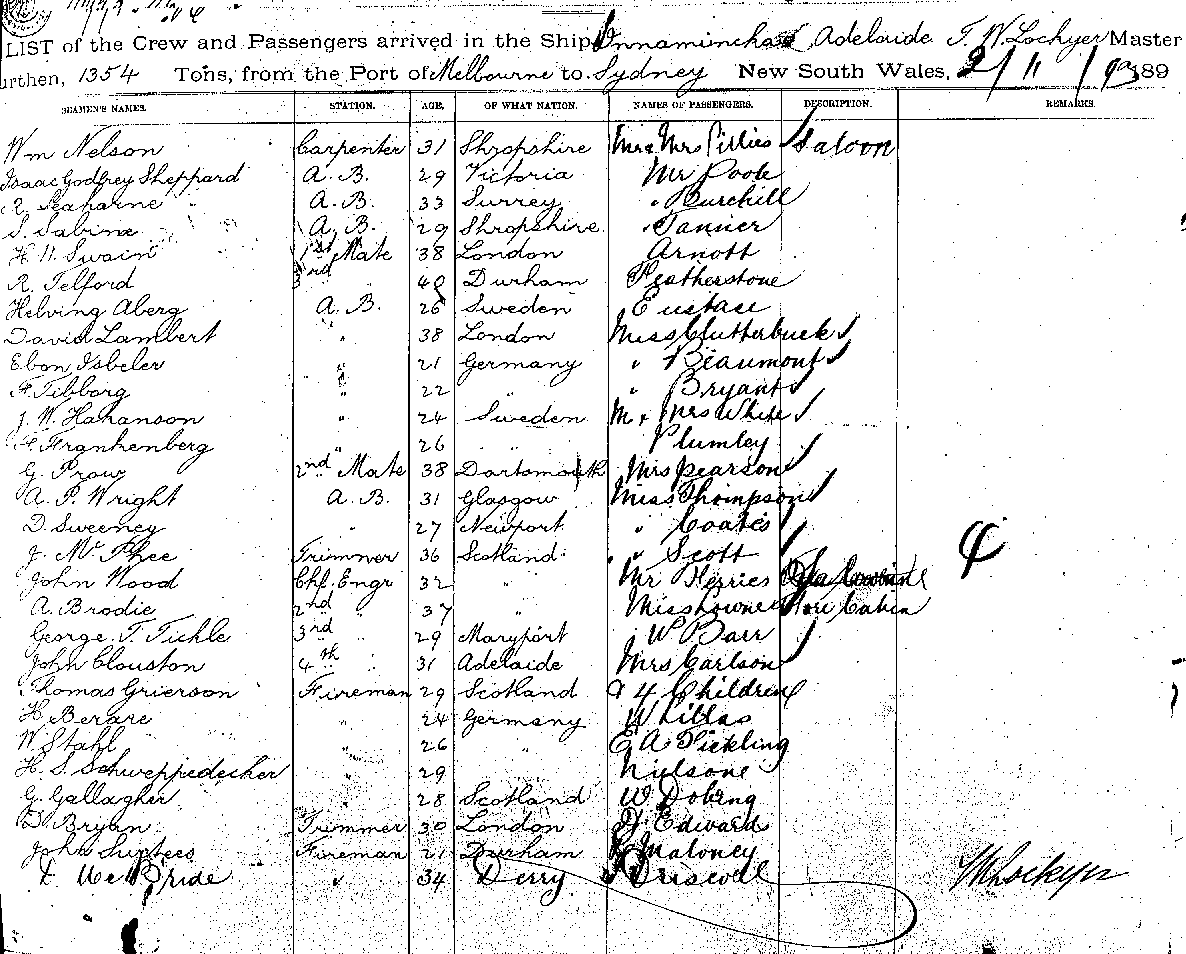 LIST of the Crew and Passengers arrived in the Ship Innamincka of Adelaide T. W. Lockyer Master
urthen, 1354 Tons, from the Port of Melbourne to Sydney New South Wales, 2/11/93 189
SEAMEN'S NAMES. STATION. AGE, OF WHAT NATION. NAMES OF PASSENGERS. DESCRIPTION. REMARKS.
Wm Nelson Carpenter 31 Shropshire Mr & Mrs Pillies Saloon
Isaac Godfrey Sheppard A. B. 29 Victoria Mr Poole
R. A. B. 33 Surrey " Burchill
S. Sabine A. B. 29 Shropshire " Tanner
H. W. Swain 1st Mate 38 London Arnott
R. Telford 3rd " 40 Durham Featherstone
Helving Aberg A. B. 26 Sweden Eustace
David Lambert " 38 London Miss Clutterbuck
Ebon Isbeler " 21 Germany " Beaumont
F. Tibborg " 22 " " Bryant
J. W. Hahanson " 24 Sweden M & Mrs White
Frankenberg " 26 " Plumley
G. Prow 2nd Mate 38 Dartsmouth Mrs Pearson
A. P. Wright A. B. 31 Glasgow Miss Thompson
D. Sweeney " 27 Newport " Coates
J. Mc Phee Trimmer 36 Scotland " Scott 4
John Wood Chf. Engr 32 " Mr Herries
A. Brodie 2nd " 37 " Miss Fore Cabin
George. T. Tickle 3rd " 29 Maryport W Barr
John Clouston 4th " 31 Adelaide Mrs Carlson
Thomas Grierson Fireman 29 Scotland & 4 Children
H. Berare " 24 Germany W
W Stahl " 26 " E A Pickling
H. S. Schweppedecher " 29 Nielsone
G. Gallagher 28 Scotland W Dobing
D Bryan Trimmer 30 London Edward
John Surtees Fireman 21 Durham Maloney
McBride " 34 Derry Driscoll TWLockyer